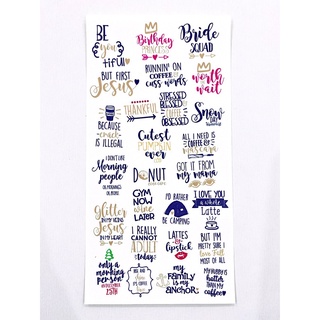 BE
you
tiful
Birthday
PRINCESS
Bride
SQUAD
BUT FIRST
Jesus
RUNNIN' ON
COFFEE &
cuss words
worth
the
wait
BECAUSE
crack
IS ILLEGAL
THANKFUL
STRESSED
BLESSED &
COFFEE
OBSESSED
Snow
DAY
Cutest
PUMPKIN
EVER
ALL I NEED IS
COFFEE &
mascara
I DON'T LIKE
Morning
people
OR MORNINGS
OR PEOPLE
DONUT
GOT IT FROM
my mama
GYM
NOW
WINE
LATER
I'D RATHER
BE CAMPING
I LOVE YOU
a whole
Latte
Glitter
IN MY VEINS
Jesus
IN MY HEART
I REALLY
CANNOT
ADULT
today
LATTES
&
lipstick
BUT I'M
PRETTY SURE I
love FALL
MOST OF ALL
only a
morning
person
ON DECEMBER
25TH
my
family
is my
anchor
MY HUBBY IS
hotter
THAN MY
coffee